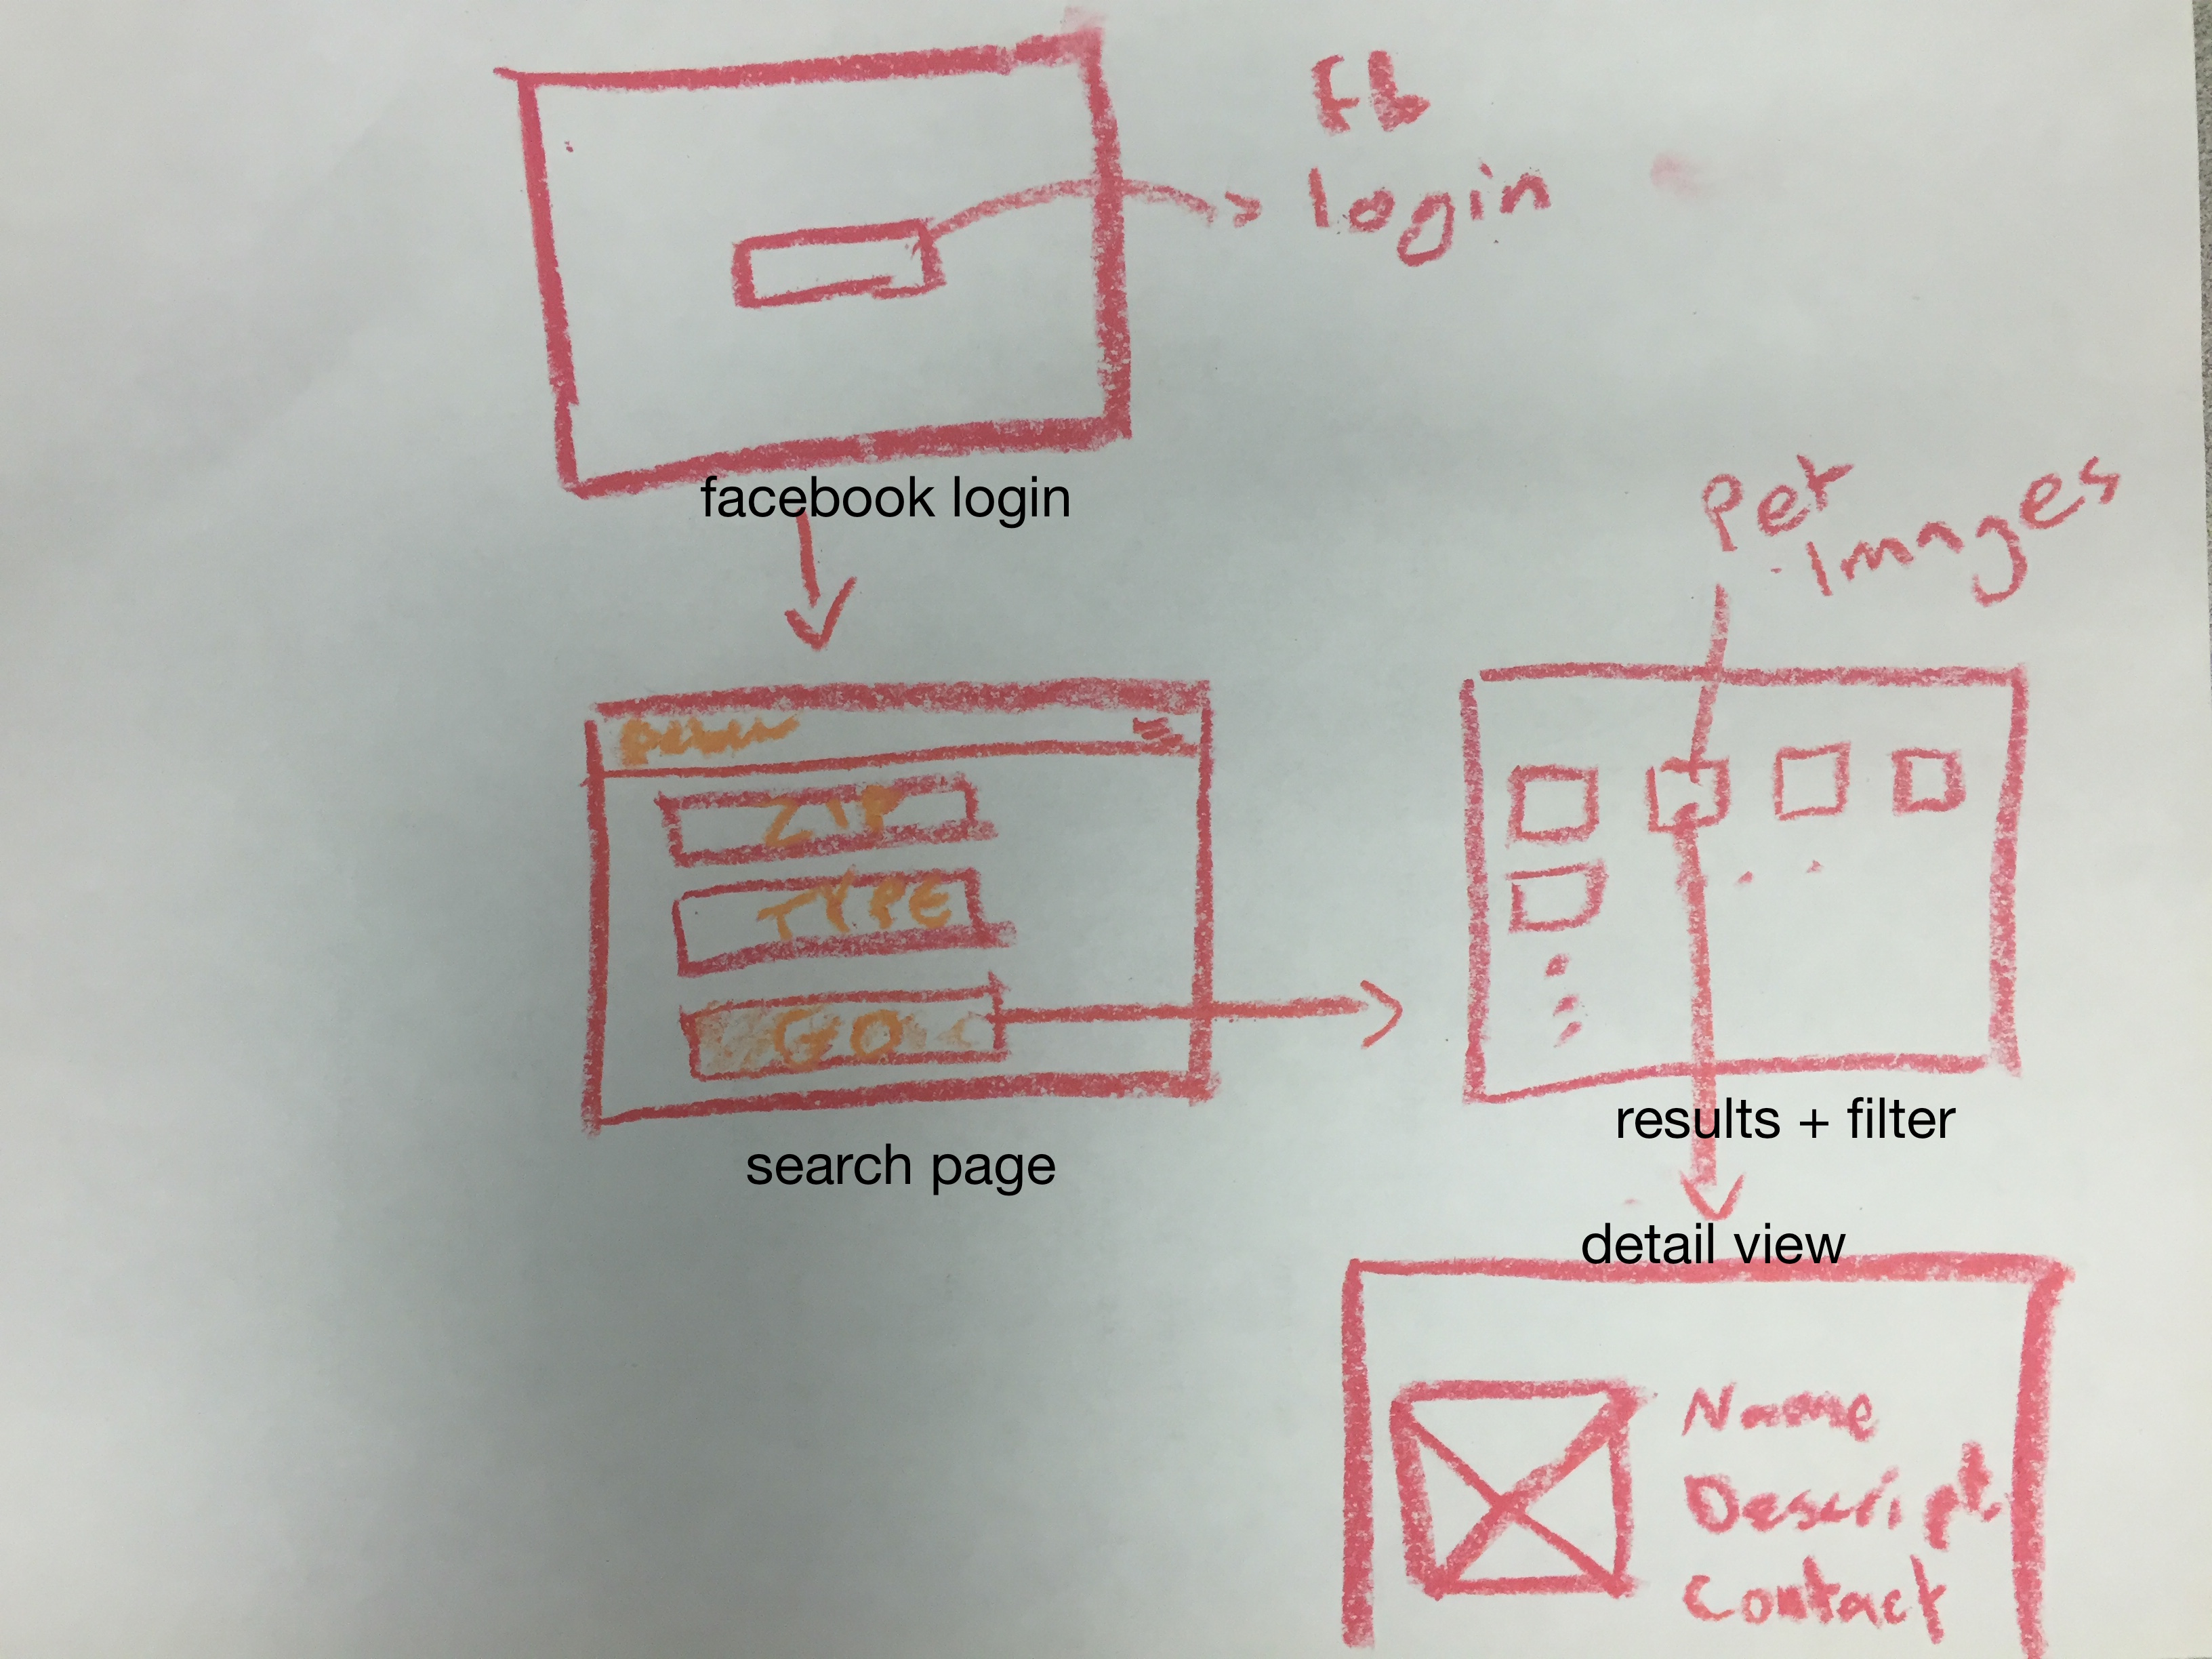 Fb
login
facebook login
Pet
Images
ZIP
TYPE
GO
search page
results + filter
detail view
Name
Descript.
Contact